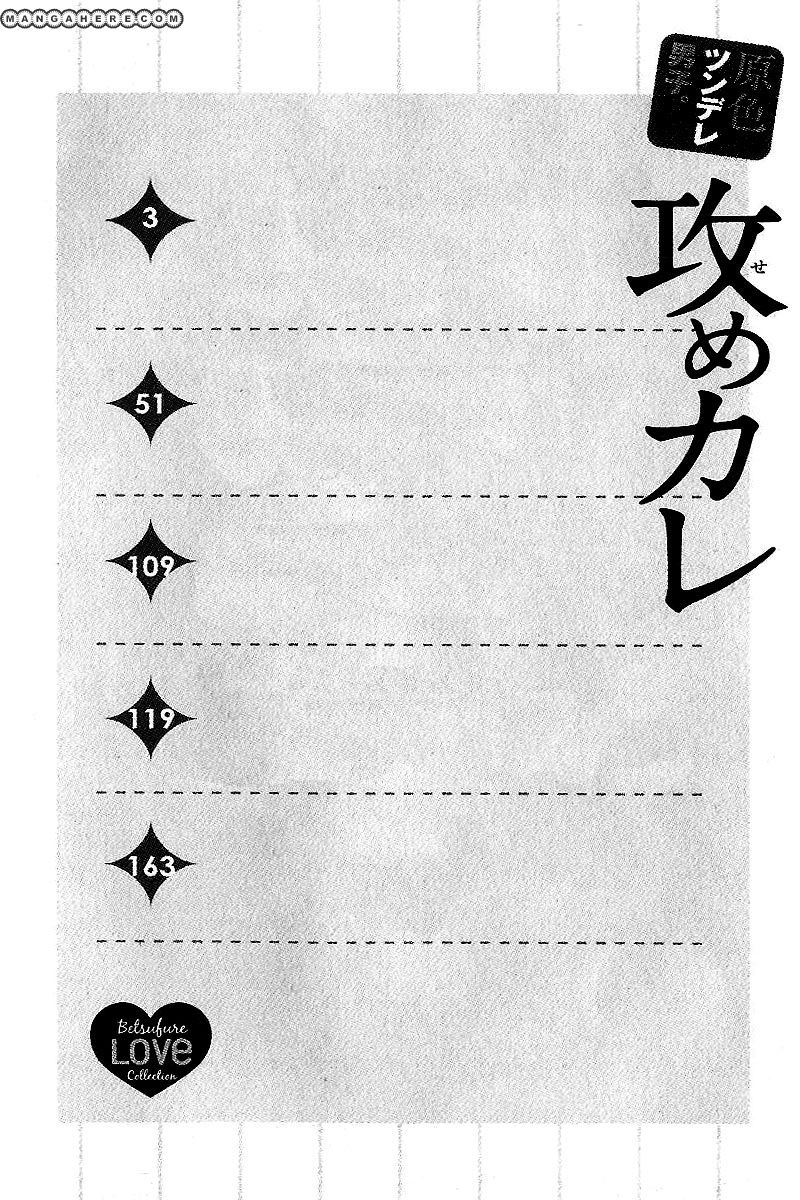 MANGAHERE.COM
原色
ツンデレ
男子。
攻めカレ
せ
3
51
109
119
163
Betsufure
LOVE
Collection